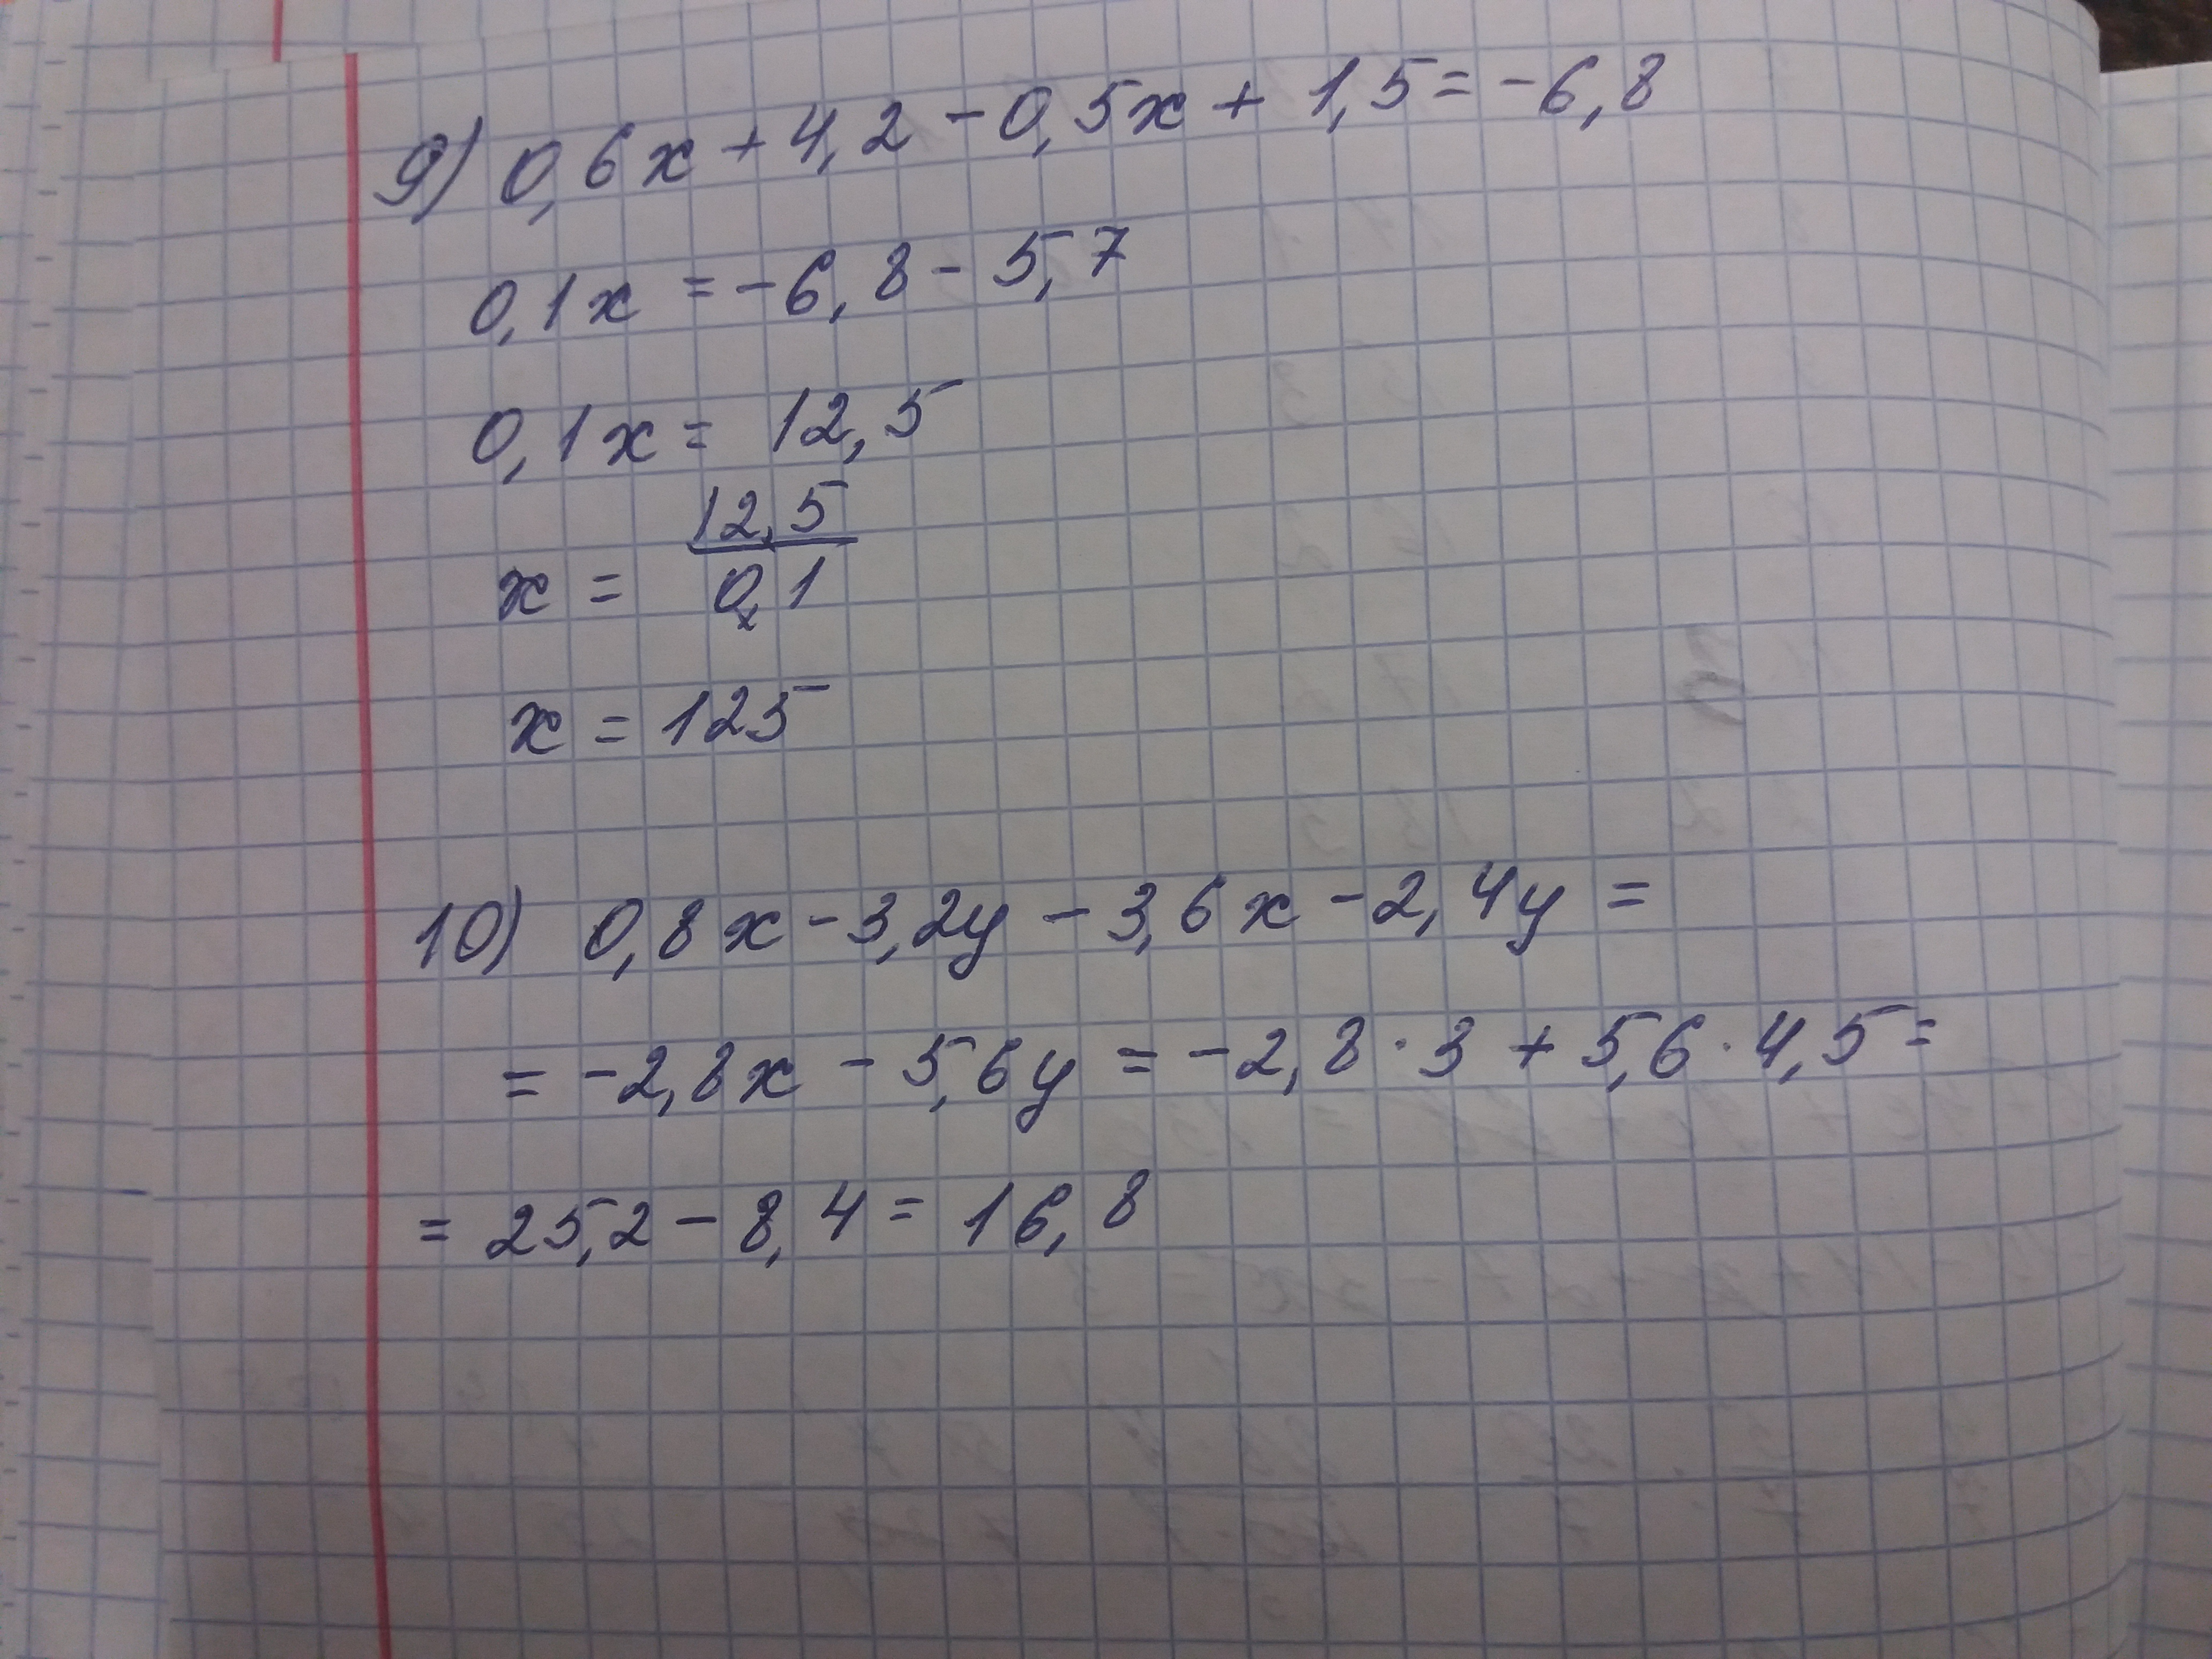 9) 0,6x + 4,2 - 0,5x + 1,5 = -6,8
0,1x = -6,8 - 5,7
0,1x = 12,5
x = 12,5/0,1
x = 125
10) 0,8x - 3,2y - 3,6x - 2,4y =
= -2,8x - 5,6y = -2,8 · 3 + 5,6 · 4,5 =
= 25,2 - 8,4 = 16,8